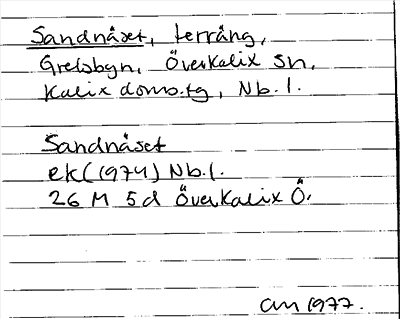 Sandnäset, terräng,
Grelsbyn, Överkalix sn,
Kalix doms.tg, Nb.l.
Sandnäset
ek (1974) Nb.l.
26 M 5d Överkalix Ö.
AM 1977.